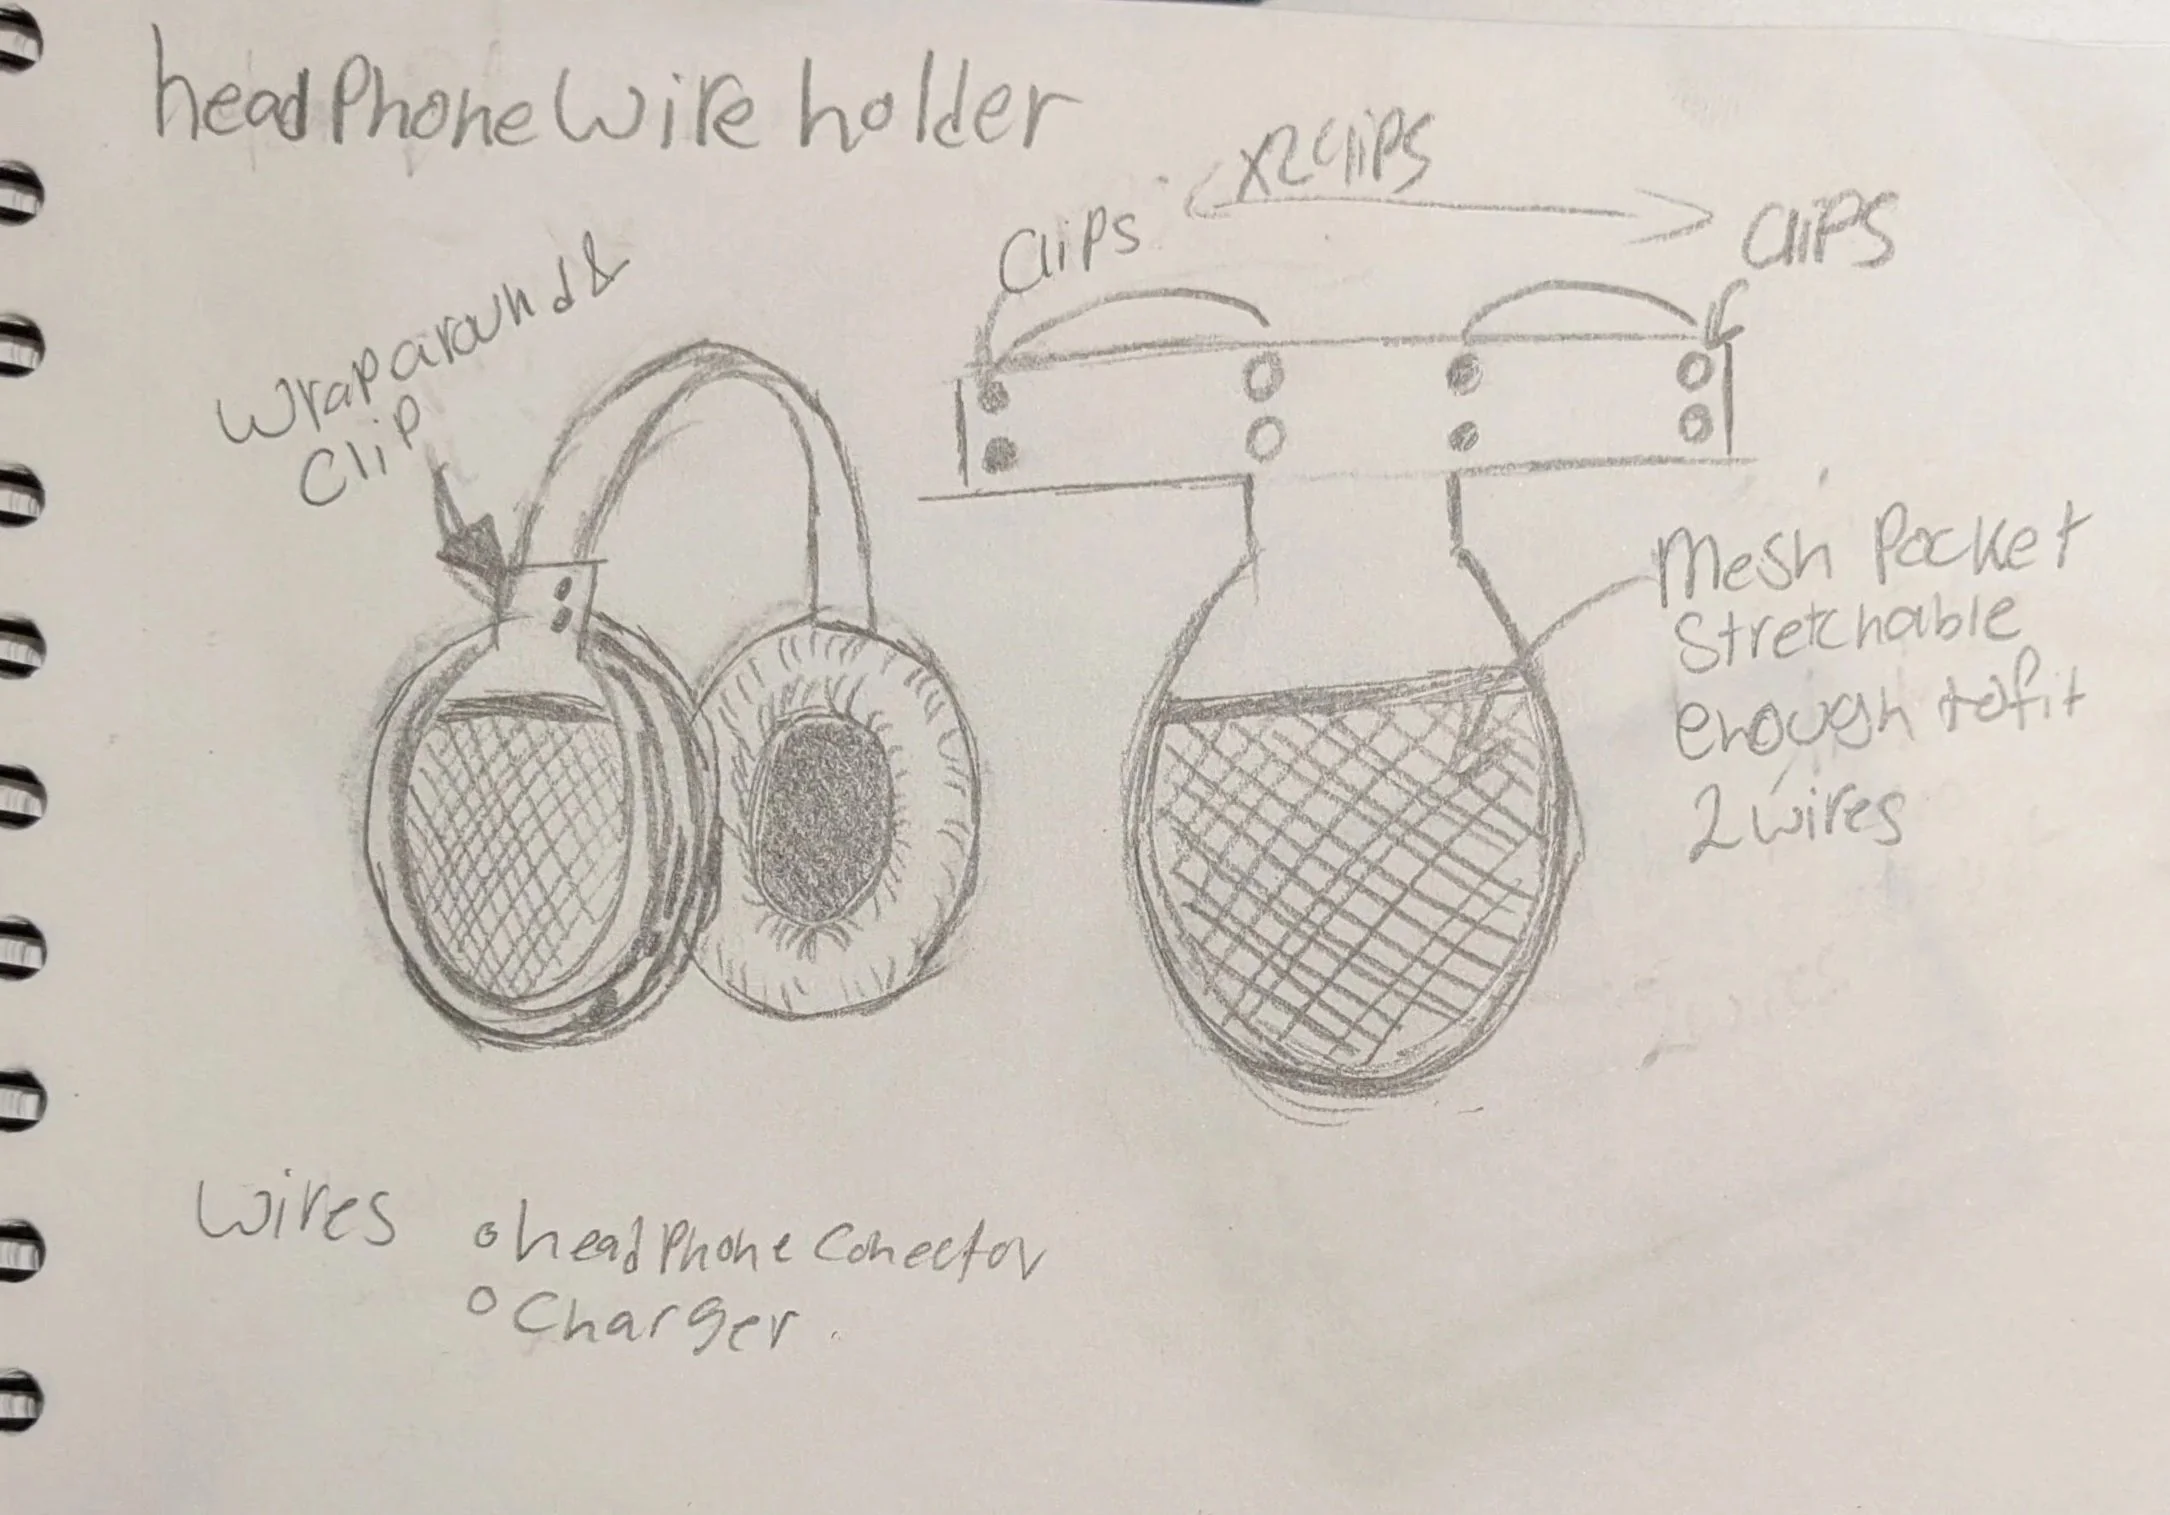 headPhone Wire holder
x2 Clips
Clips
Clips
Wrap around &
Clip
Mesh Pocket
Stretchable
enough to fit
2 wires
Wires
headphone Conector
Charger.